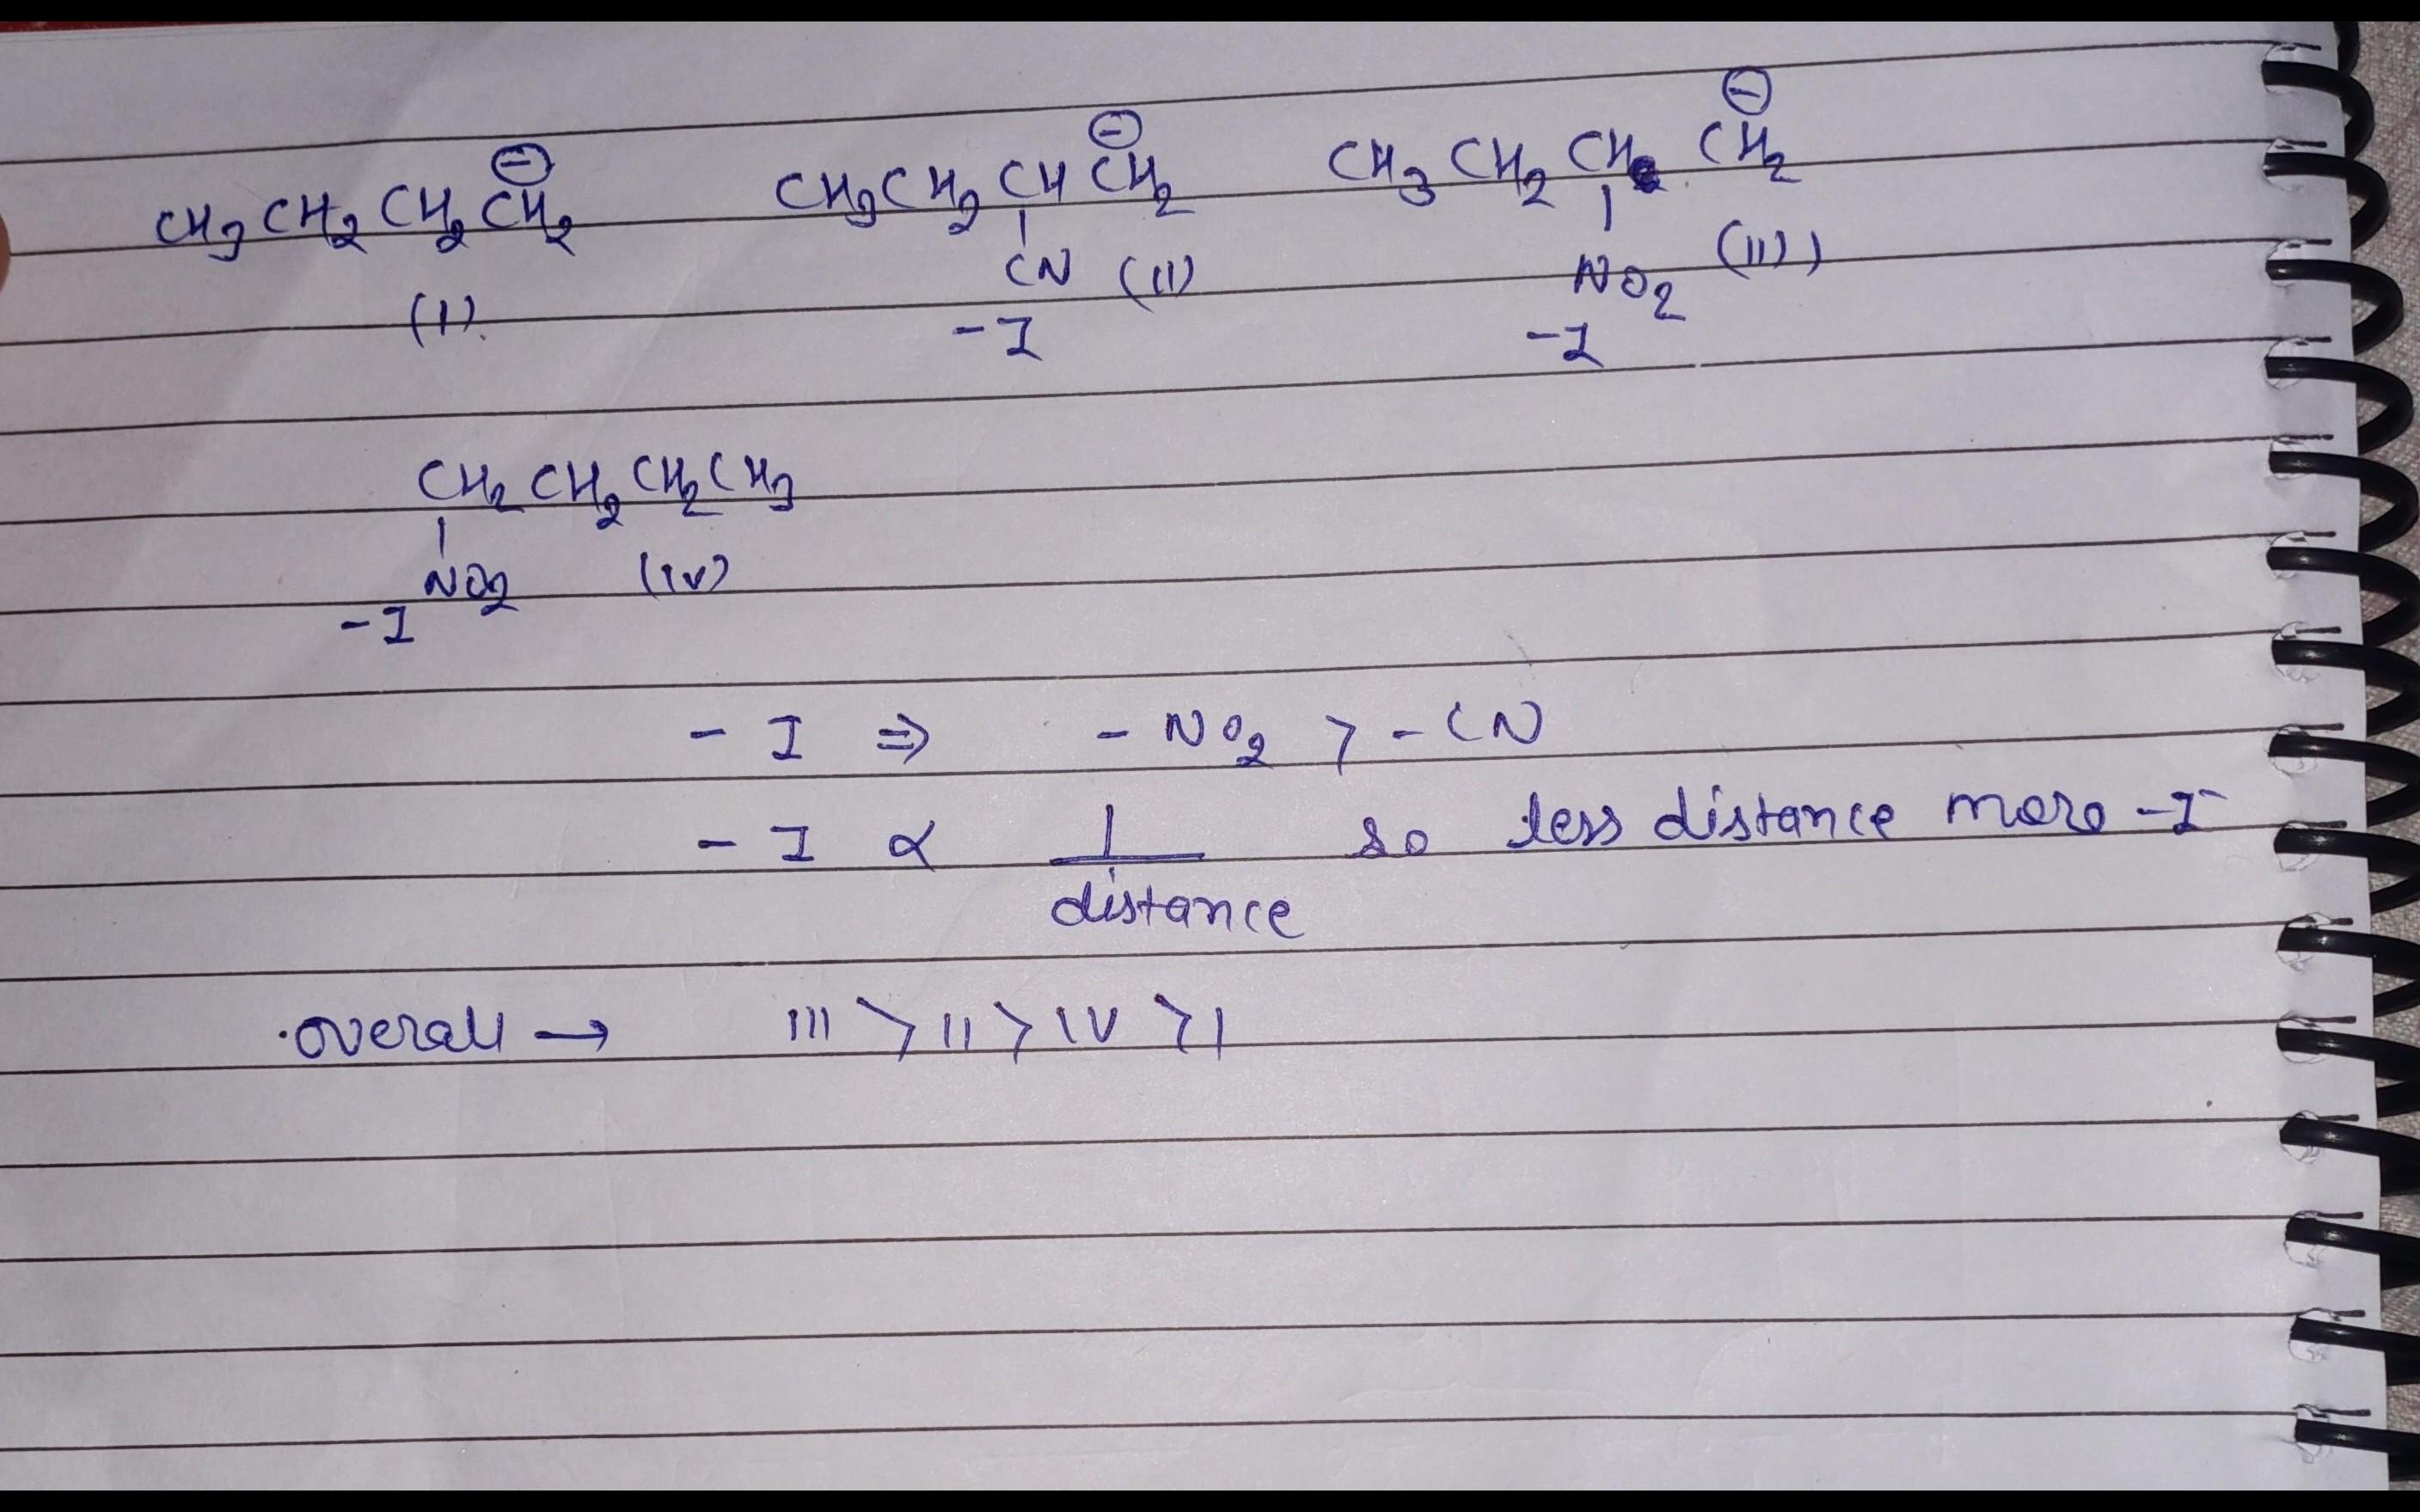 CH₃ CH₂ CH₂ C⊖H₂ CH₃CH₂ CH C⊖H₂ CH₃ CH₂ CH C⊖H₂
| |
(I) CN (II) NO₂ (III)
-I -I
CH₂ CH₂ CH₂ CH₃
|
NO₂ (IV)
-I
- I ⇒ - NO₂ > - CN
- I ∝ 1/distance so less distance more -I
overall → III > II > IV > I